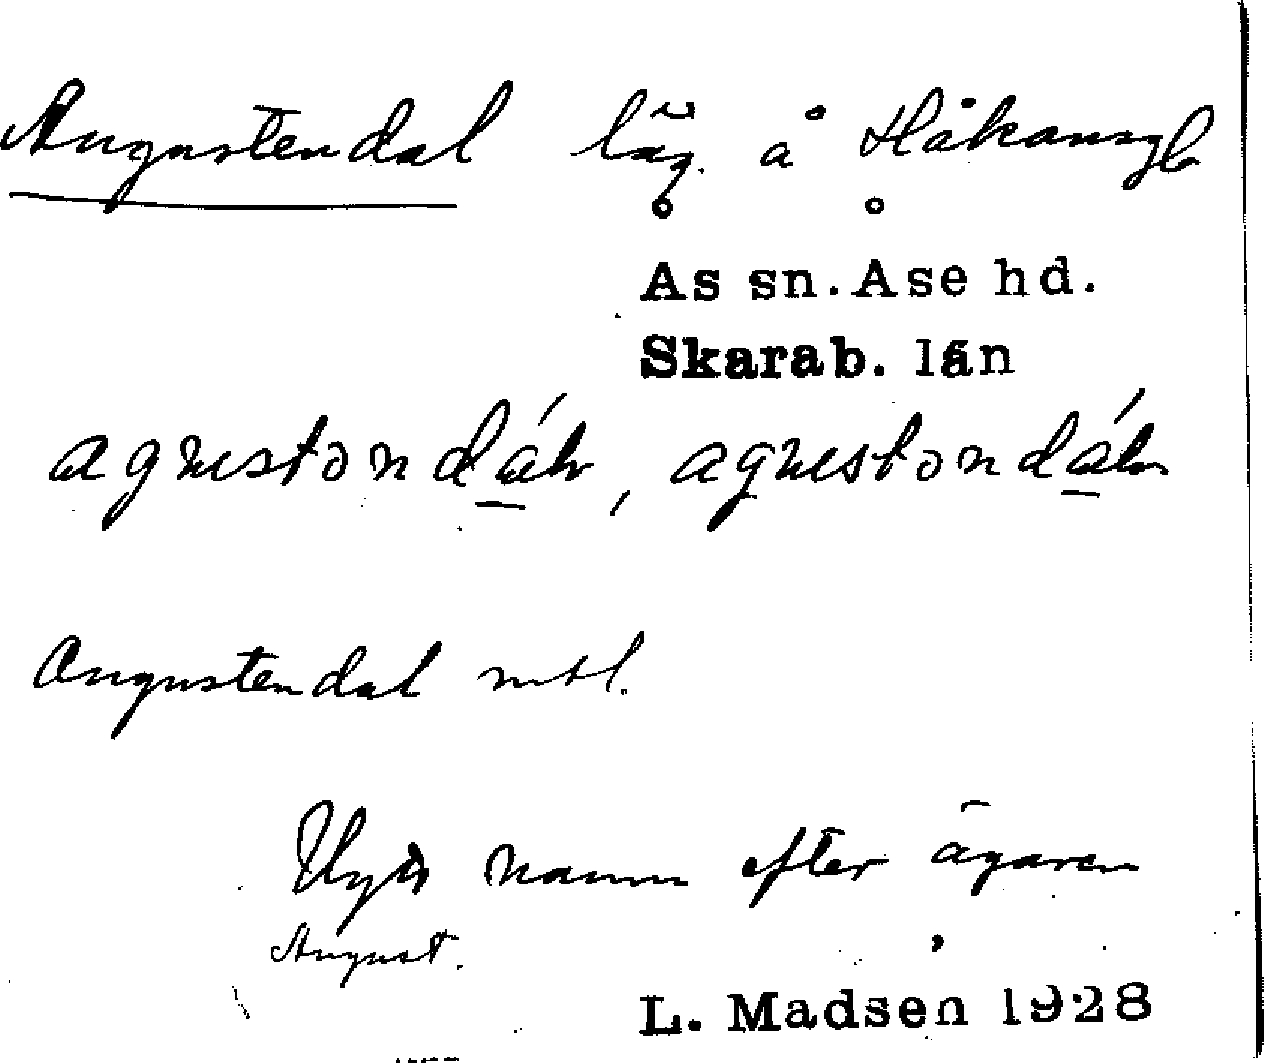 Augustendal läg. å Håkansgb
Ås sn. Åse hd.
Skarab. län
agustondáḷ, agustondáḷ
Augustendal mtl.
Nytt namn efter ägaren
August.
L. Madsen 1928